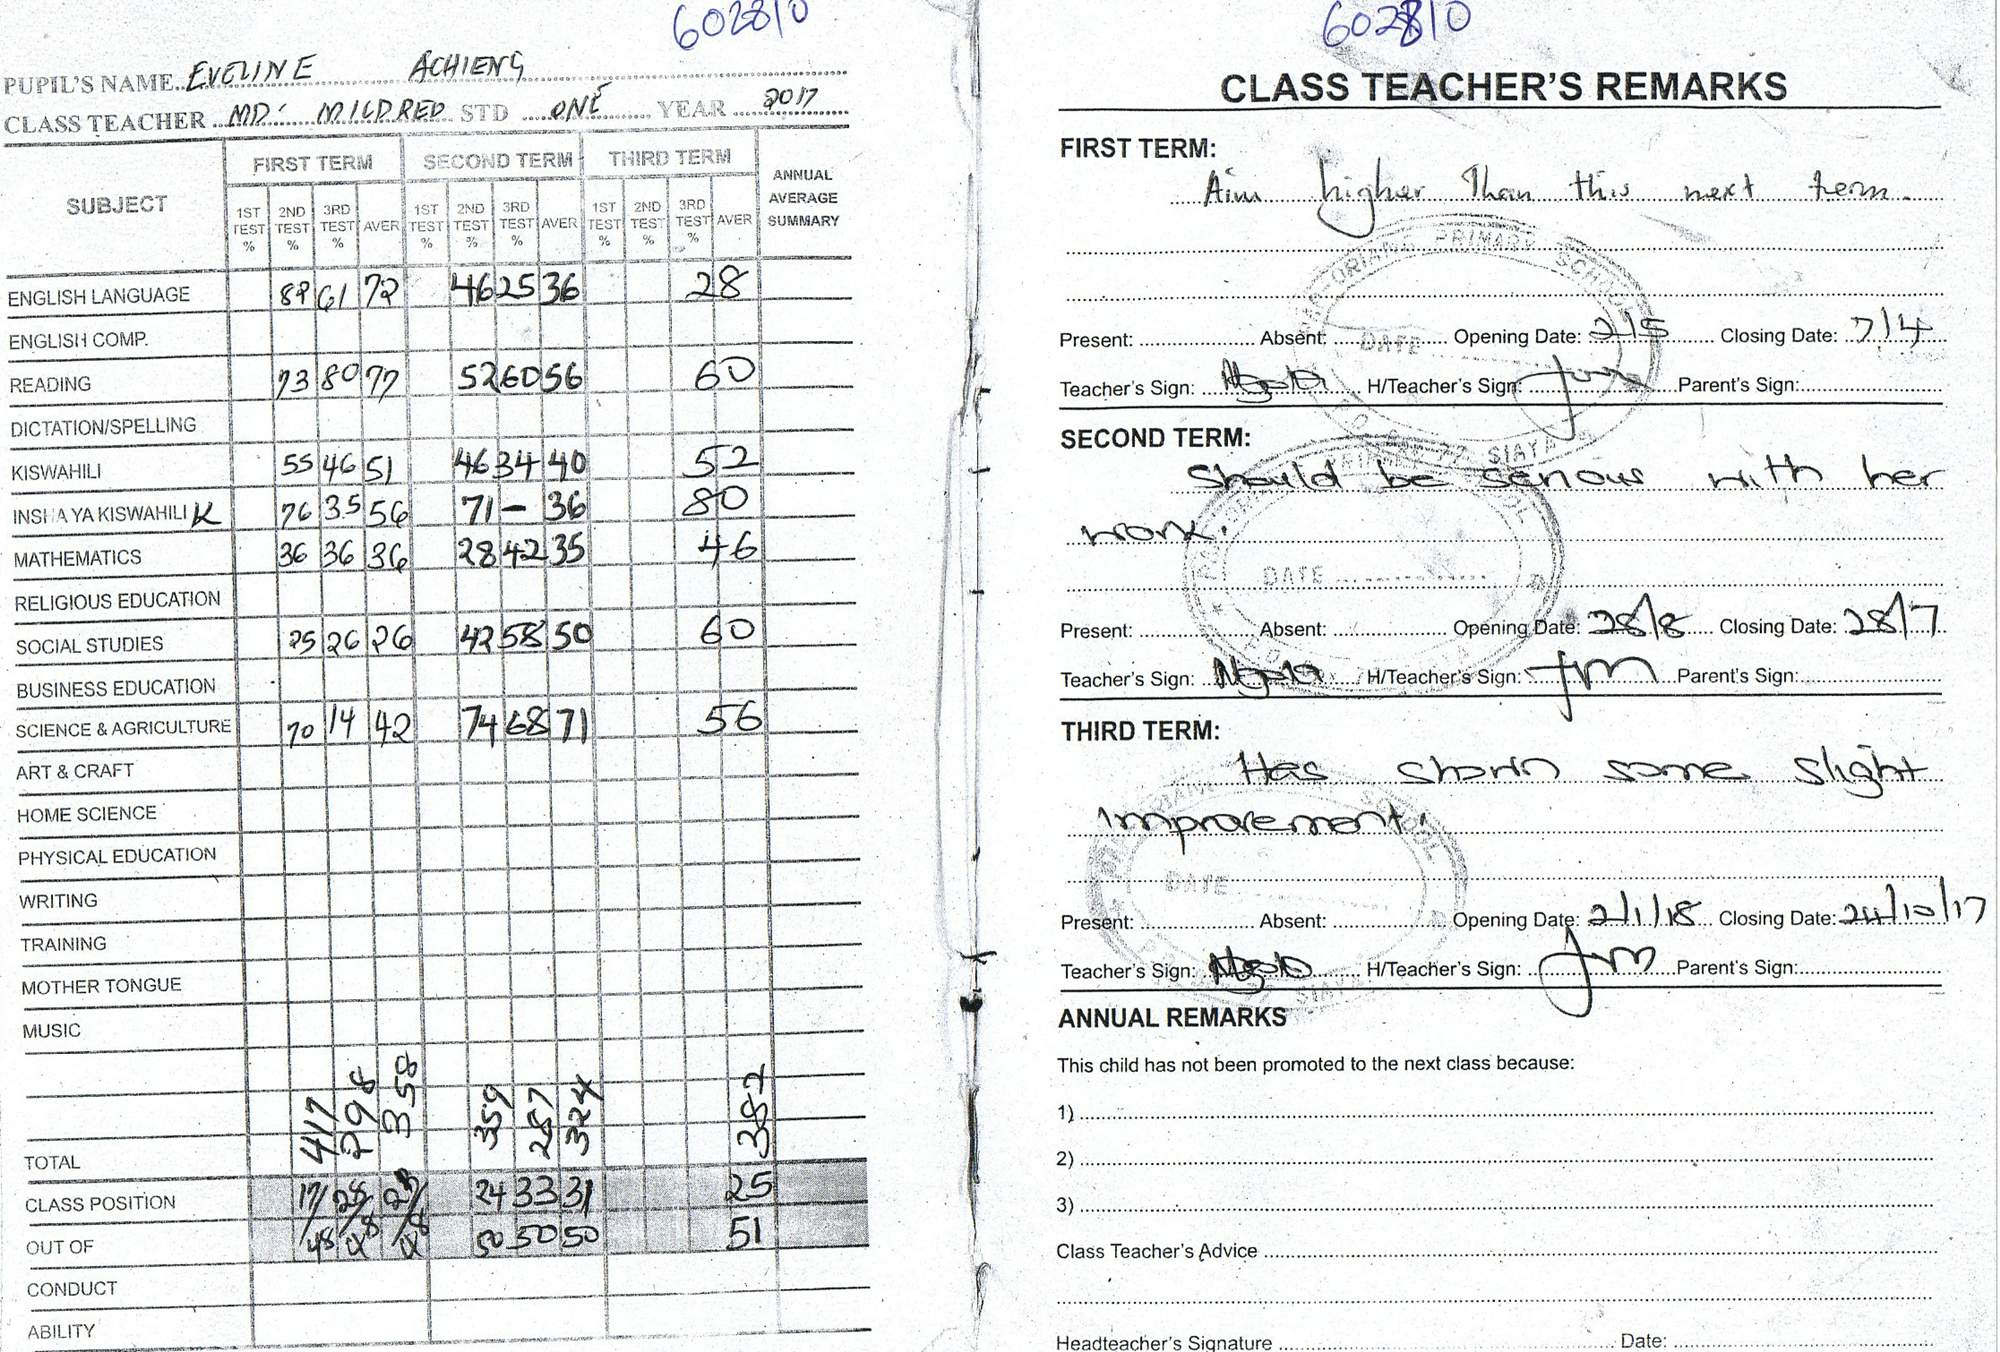 602810
PUPIL'S NAME EVELINE ACHIENG
CLASS TEACHER MD: MILDRED STD ONE YEAR 2017
SUBJECT FIRST TERM SECOND TERM THIRD TERM ANNUAL AVERAGE SUMMARY
1ST TEST % 2ND TEST % 3RD TEST % AVER 1ST TEST % 2ND TEST % 3RD TEST % AVER 1ST TEST % 2ND TEST % 3RD TEST % AVER
ENGLISH LANGUAGE 82 61 72 46 25 36 28
ENGLISH COMP.
READING 73 80 77 52 60 56 60
DICTATION/SPELLING
KISWAHILI 55 46 51 46 34 40 52
INSHA YA KISWAHILI K 76 35 56 71 - 36 80
MATHEMATICS 36 36 36 28 42 35 46
RELIGIOUS EDUCATION
SOCIAL STUDIES 25 26 26 42 58 50 60
BUSINESS EDUCATION
SCIENCE & AGRICULTURE 70 14 42 74 68 71 56
ART & CRAFT
HOME SCIENCE
PHYSICAL EDUCATION
WRITING
TRAINING
MOTHER TONGUE
MUSIC
TOTAL 417 298 358 359 287 324 382
CLASS POSITION 17/ 24 33 31 25
OUT OF 48 50 50 50 51
CONDUCT
ABILITY
602810
CLASS TEACHER'S REMARKS
FIRST TERM:
Aim higher Than this next term.
Present: Absent: Opening Date: 2/5 Closing Date: 7/4
Teacher's Sign: H/Teacher's Sign: Parent's Sign:
SECOND TERM:
Should be serious with her
work.
DATE
Present: Absent: Opening Date: 28/8 Closing Date: 28/7
Teacher's Sign: H/Teacher's Sign: Parent's Sign:
THIRD TERM:
Has shown some slight
improvement.
DATE
Present: Absent: Opening Date: 2/1/18 Closing Date: 24/10/17
Teacher's Sign: H/Teacher's Sign: Parent's Sign:
ANNUAL REMARKS
This child has not been promoted to the next class because:
1)
2)
3)
Class Teacher's Advice
Headteacher's Signature Date: